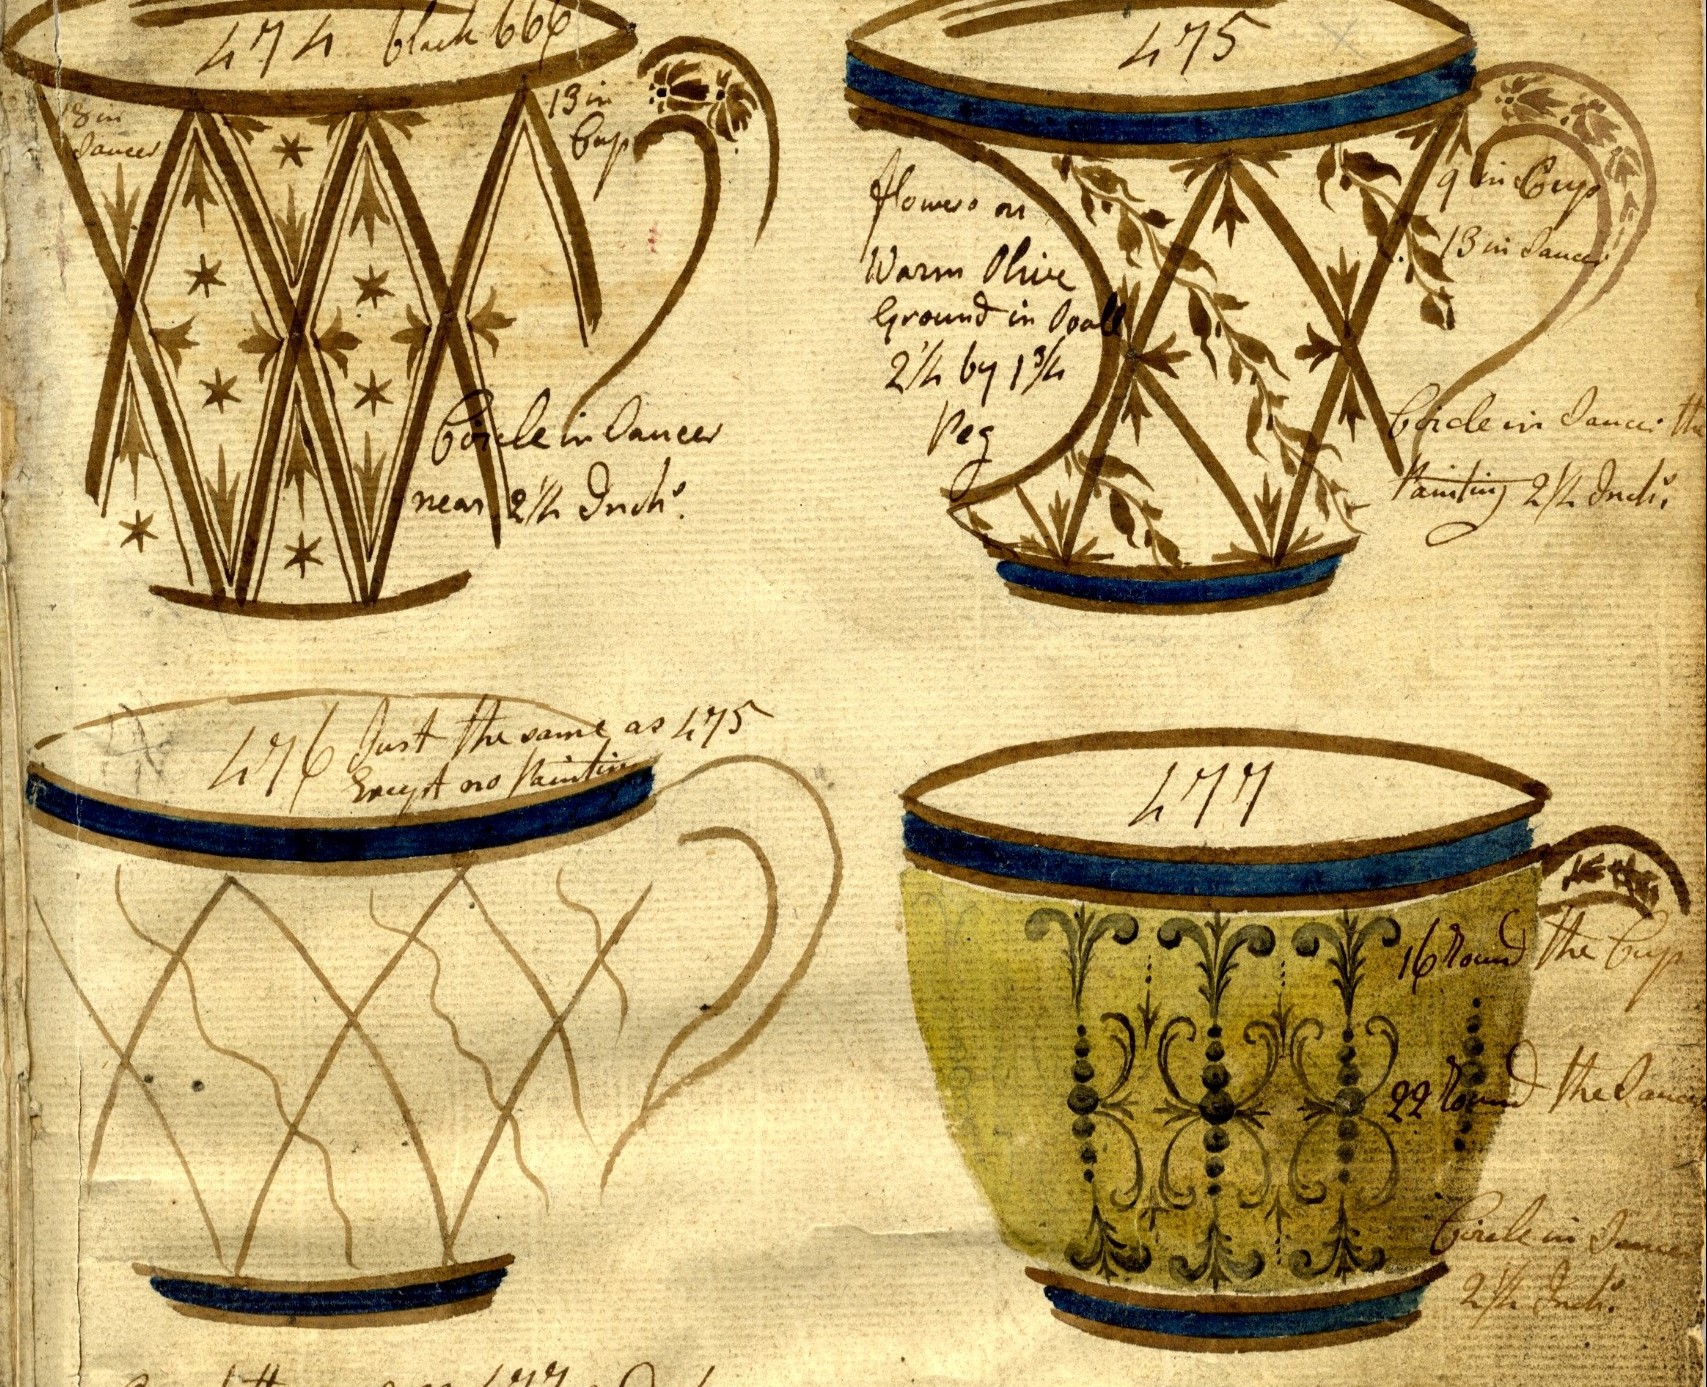 474 black 666
13 in
Saucer
13 in
Cup
Circle in Saucer
near 2 1/4 Inchs.
475
flowers on
Warm Olive
Ground in
2 1/4 by 1 3/4
Peg
9 in Cup
13 in Saucer
Circle in Saucer the
Painting 2 1/4 Inchs.
476 Just the same as 475
Except no Painting
477
16 Round the Cup
22 Round the Saucer
Circle in Saucer
2 1/4 Inchs.